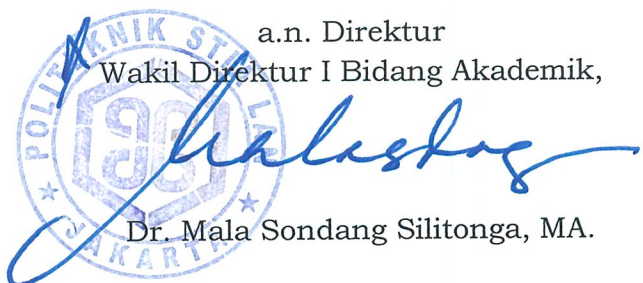 a.n. Direktur
Wakil Direktur I Bidang Akademik,
POLITEKNIK STIA LAN
JAKARTA
Dr. Mala Sondang Silitonga, MA.